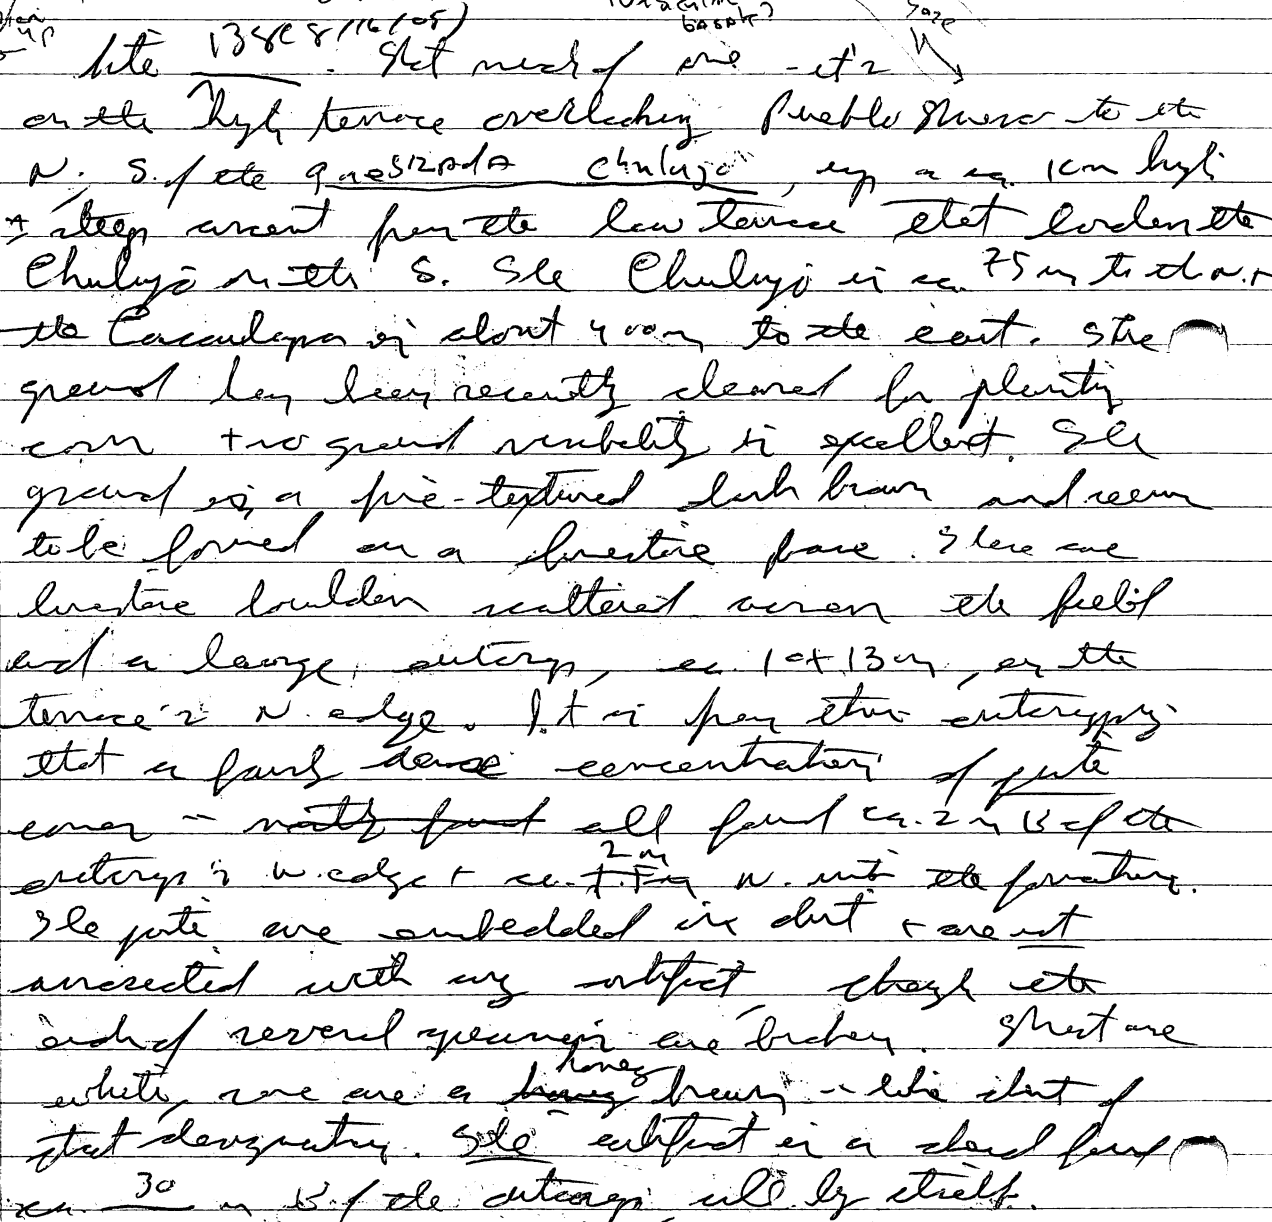 Site 138 (8/16/05). Not much of one - it's
on the high terrace overlooking Pueblo Nuevo to the
N, S. of the quebrada Chuluyo, up a ca. 1 km high
+ steep ascent from the low terrace that borders the
Chuluyo on the S. The Chuluyo is ca. 75 m to the N. +
the Cacaulapa is about 400 m to the east. The
ground has been recently cleared for planting
corn + so ground visibility is excellent. The
ground is a fine-textured dark brown and seems
to be formed on a limestone base. There are
limestone boulders scattered across the field
and a large outcrop, ca. 10 x 13 m, on the
terrace's N. edge. It is from this outcropping
that a fairly dense concentration of jute
comes - mostly found all found ca. 2 m E of the
outcrop's W. edge + ca. 2 m N. into the formation.
The jute are embedded in dirt + are not
associated with any artifacts, though the
ends of several specimens are broken. Most are
white, some are a honey brown - like dirt of
that designation. The artifact is a sherd found
ca. 30 m E. of the outcrop, all by itself.